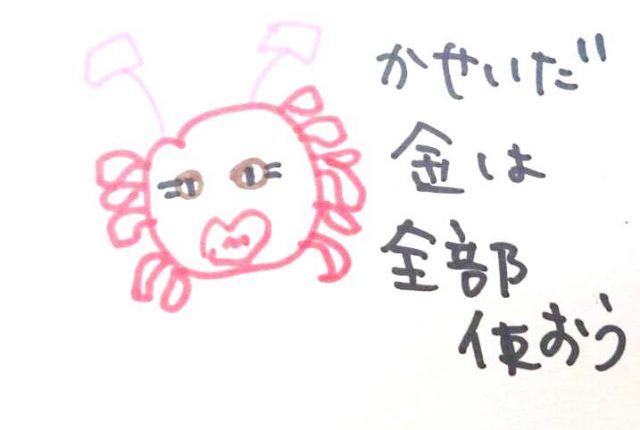 かせいだ
金は
全部
使おう